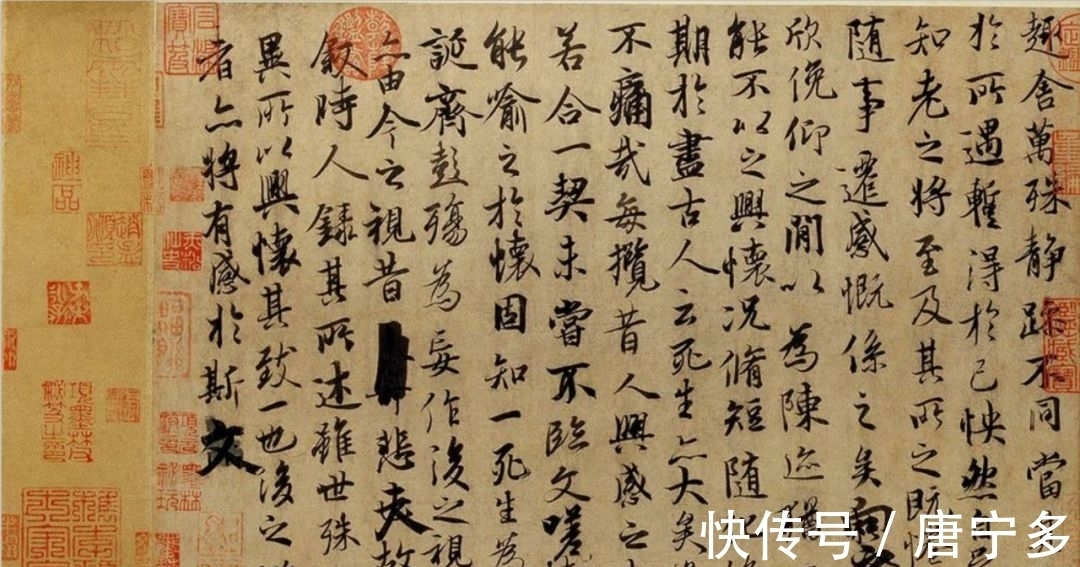 趣舍萬殊静躁不同當
於所遇蹔得於己怏然自
知老之將至及其所之既惓
随事遷感慨係之矣向
欣俛仰之閒以為陳迹猶
能不以之興懷況脩短随化
期於盡古人云死生亦大矣
不痛哉每攬昔人興感之
若合一契未嘗不臨文嗟
能喻之於懷固知一死生為
誕齊彭殤為妄作後之視
亦由今之視昔悲夫故
敘時人錄其所述雖世殊
異所以興懷其致一也後之
者亦將有感於斯文
神品
快传号 / 唐宁多